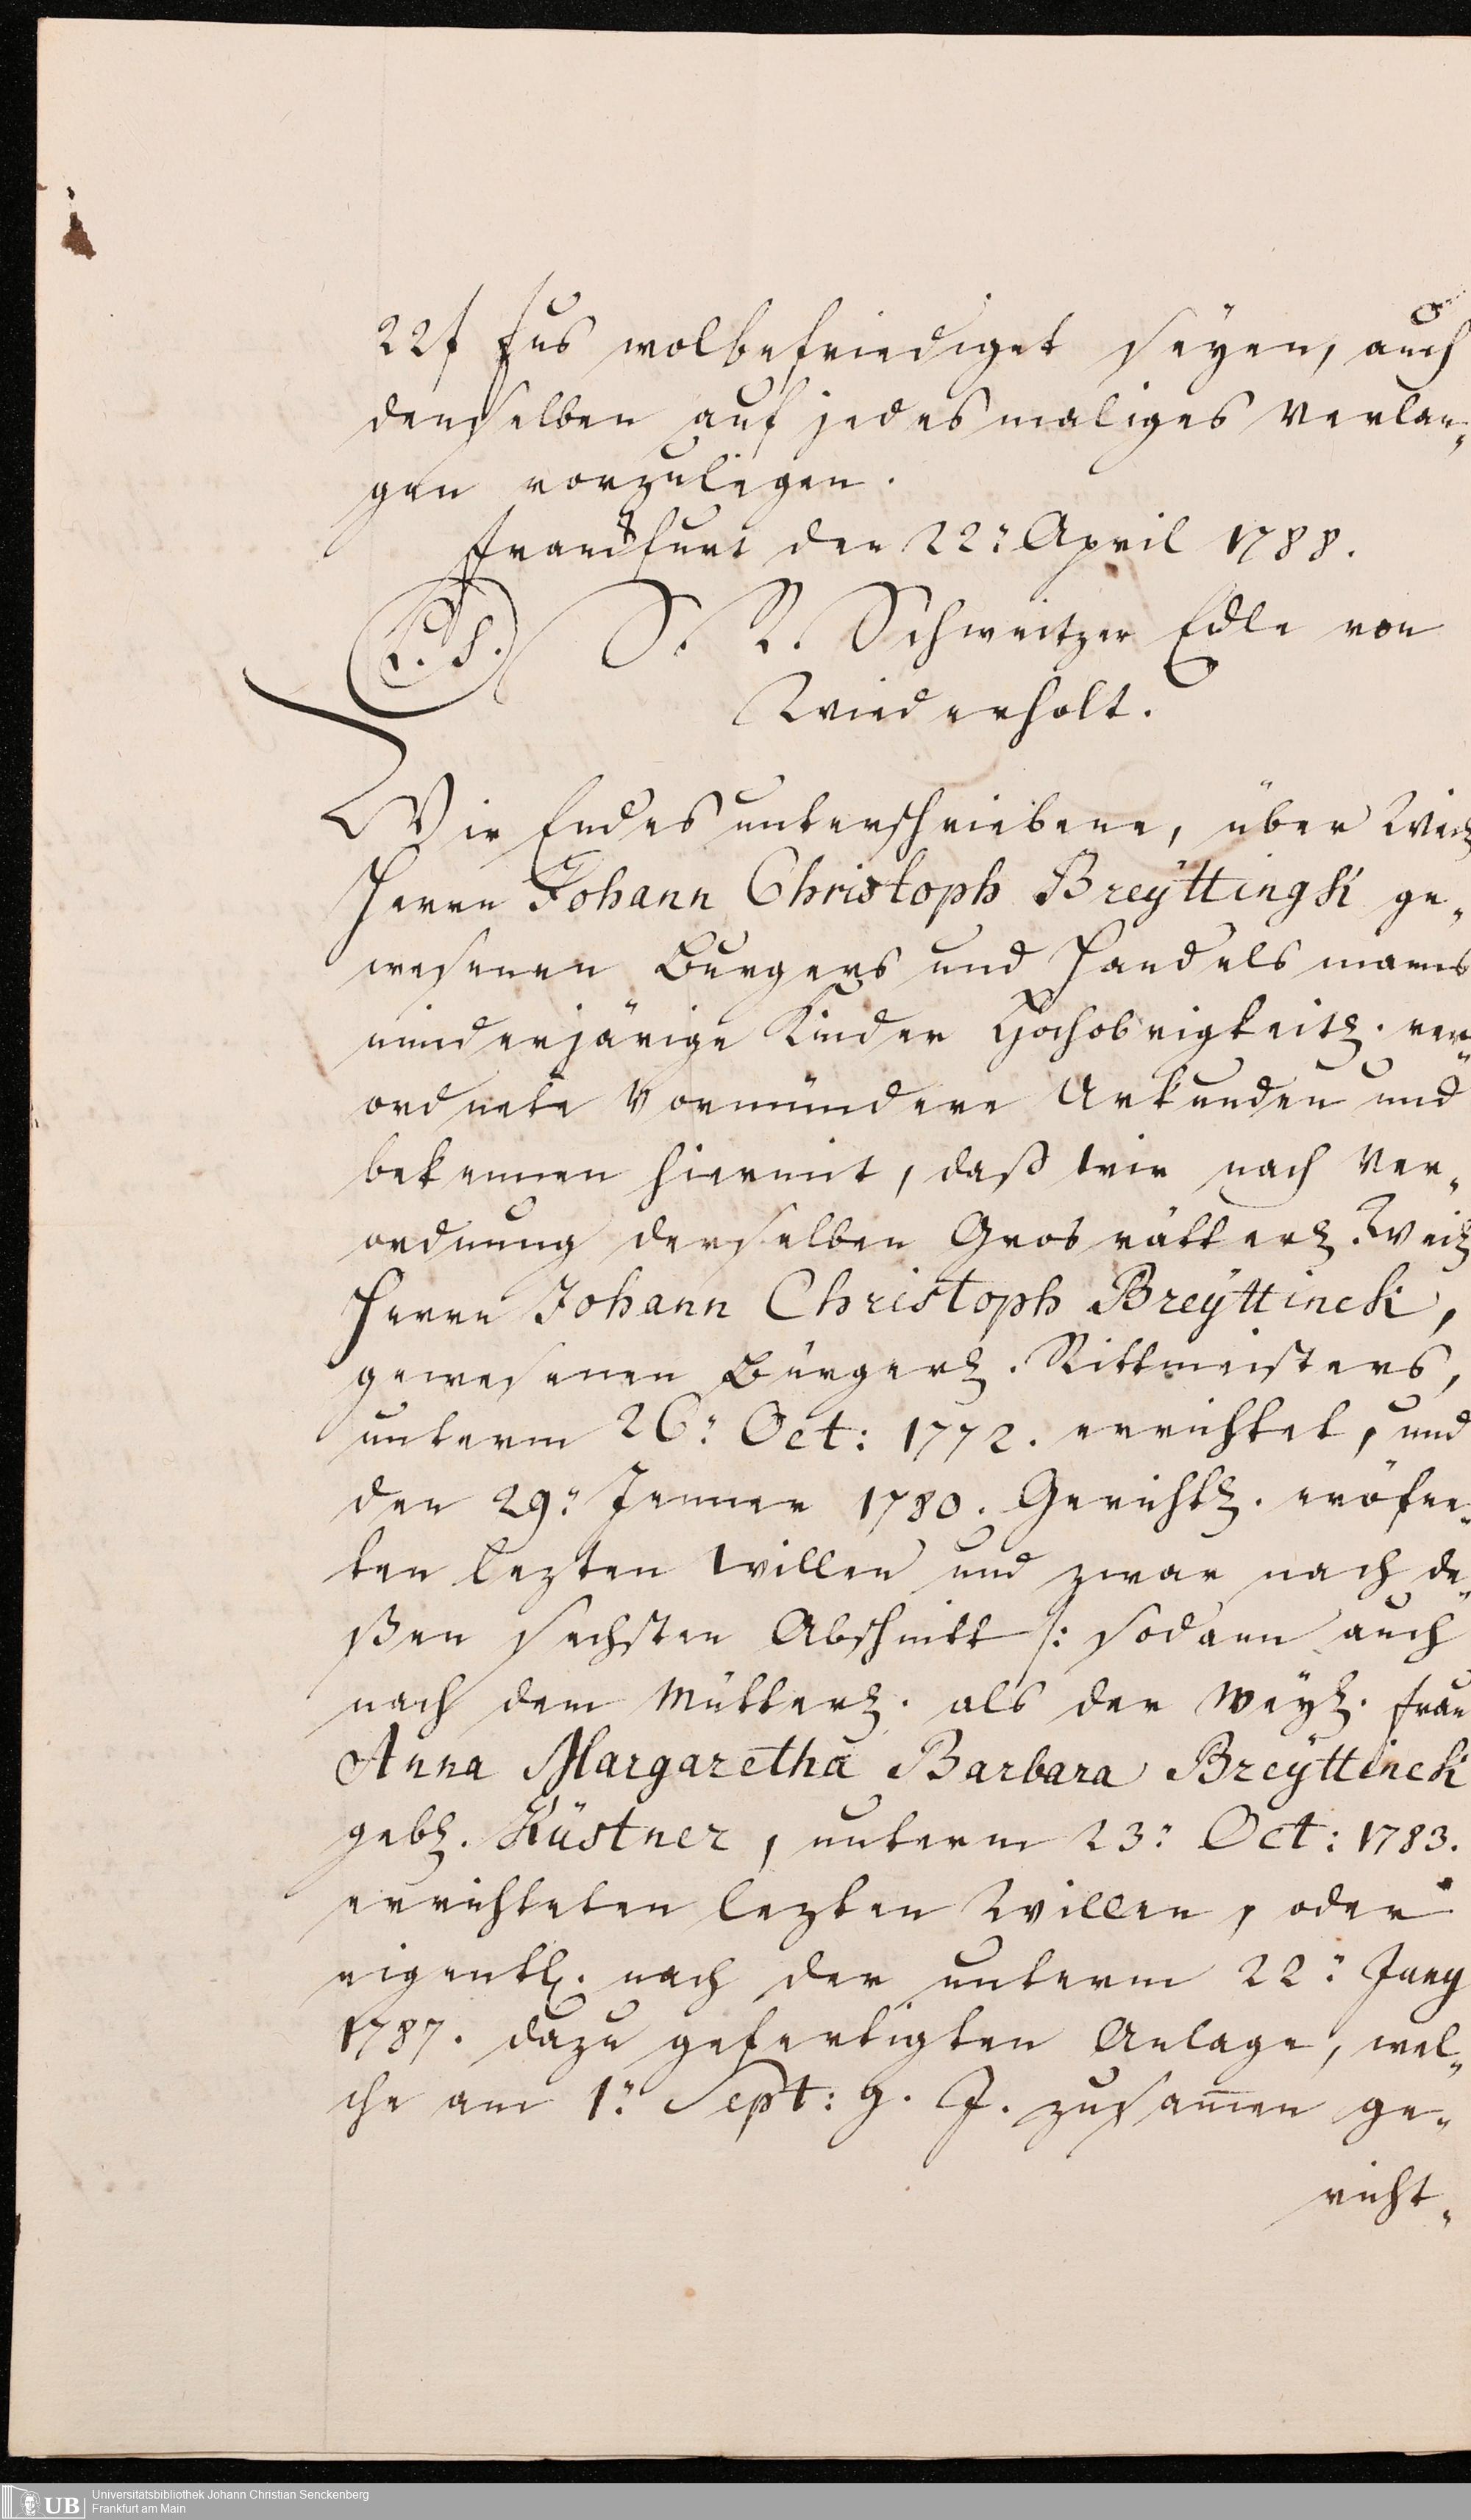 22f Fus wolbefriediget seÿen, auch
denselben auf jedesmaliges Verlan„
gen vorzulegen.
Franckfurt den 22: April 1788.
L. S. S. R. Schweitzer Edle von
Wiederholt.
Wir Endes unterschriebene, über Weil.
Herrn Johann Christoph Breÿttingk ge„
wesenen Burgers und Handelsmanns
minderjärige Kinder Hochobrigkeitl. ver„
ordnete Vormündere Urkunden und
bekennen hiermit, daß wir nach Ver„
ordnung derselben Grosvätterl. Weil.
Herrn Johann Christoph Breÿttinck,
gewesenen Bürgerl. Rittmeisters,
unterm 26: Oct: 1772. errichtet, und
den 29: Jenner 1780. Gerichtl. eröfne„
ten lezten Willen und zwar nach de„
ßen sechsten Abschnitt /: sodann auch
nach dem Mütterl. als der Weyl. Frau
Anna Margaretha Barbara Breÿttinck
gebl. Küstner, unterm 23: Oct: 1783.
errichteten lezten Willen, oder
eigentl. nach der unterm 22: Juny
1787. dazu gefertigten Anlage, wel„
che am 1: Sept: g. J. zusamen ge„
richt„
Universitätsbibliothek Johann Christian Senckenberg
Frankfurt am Main
UB